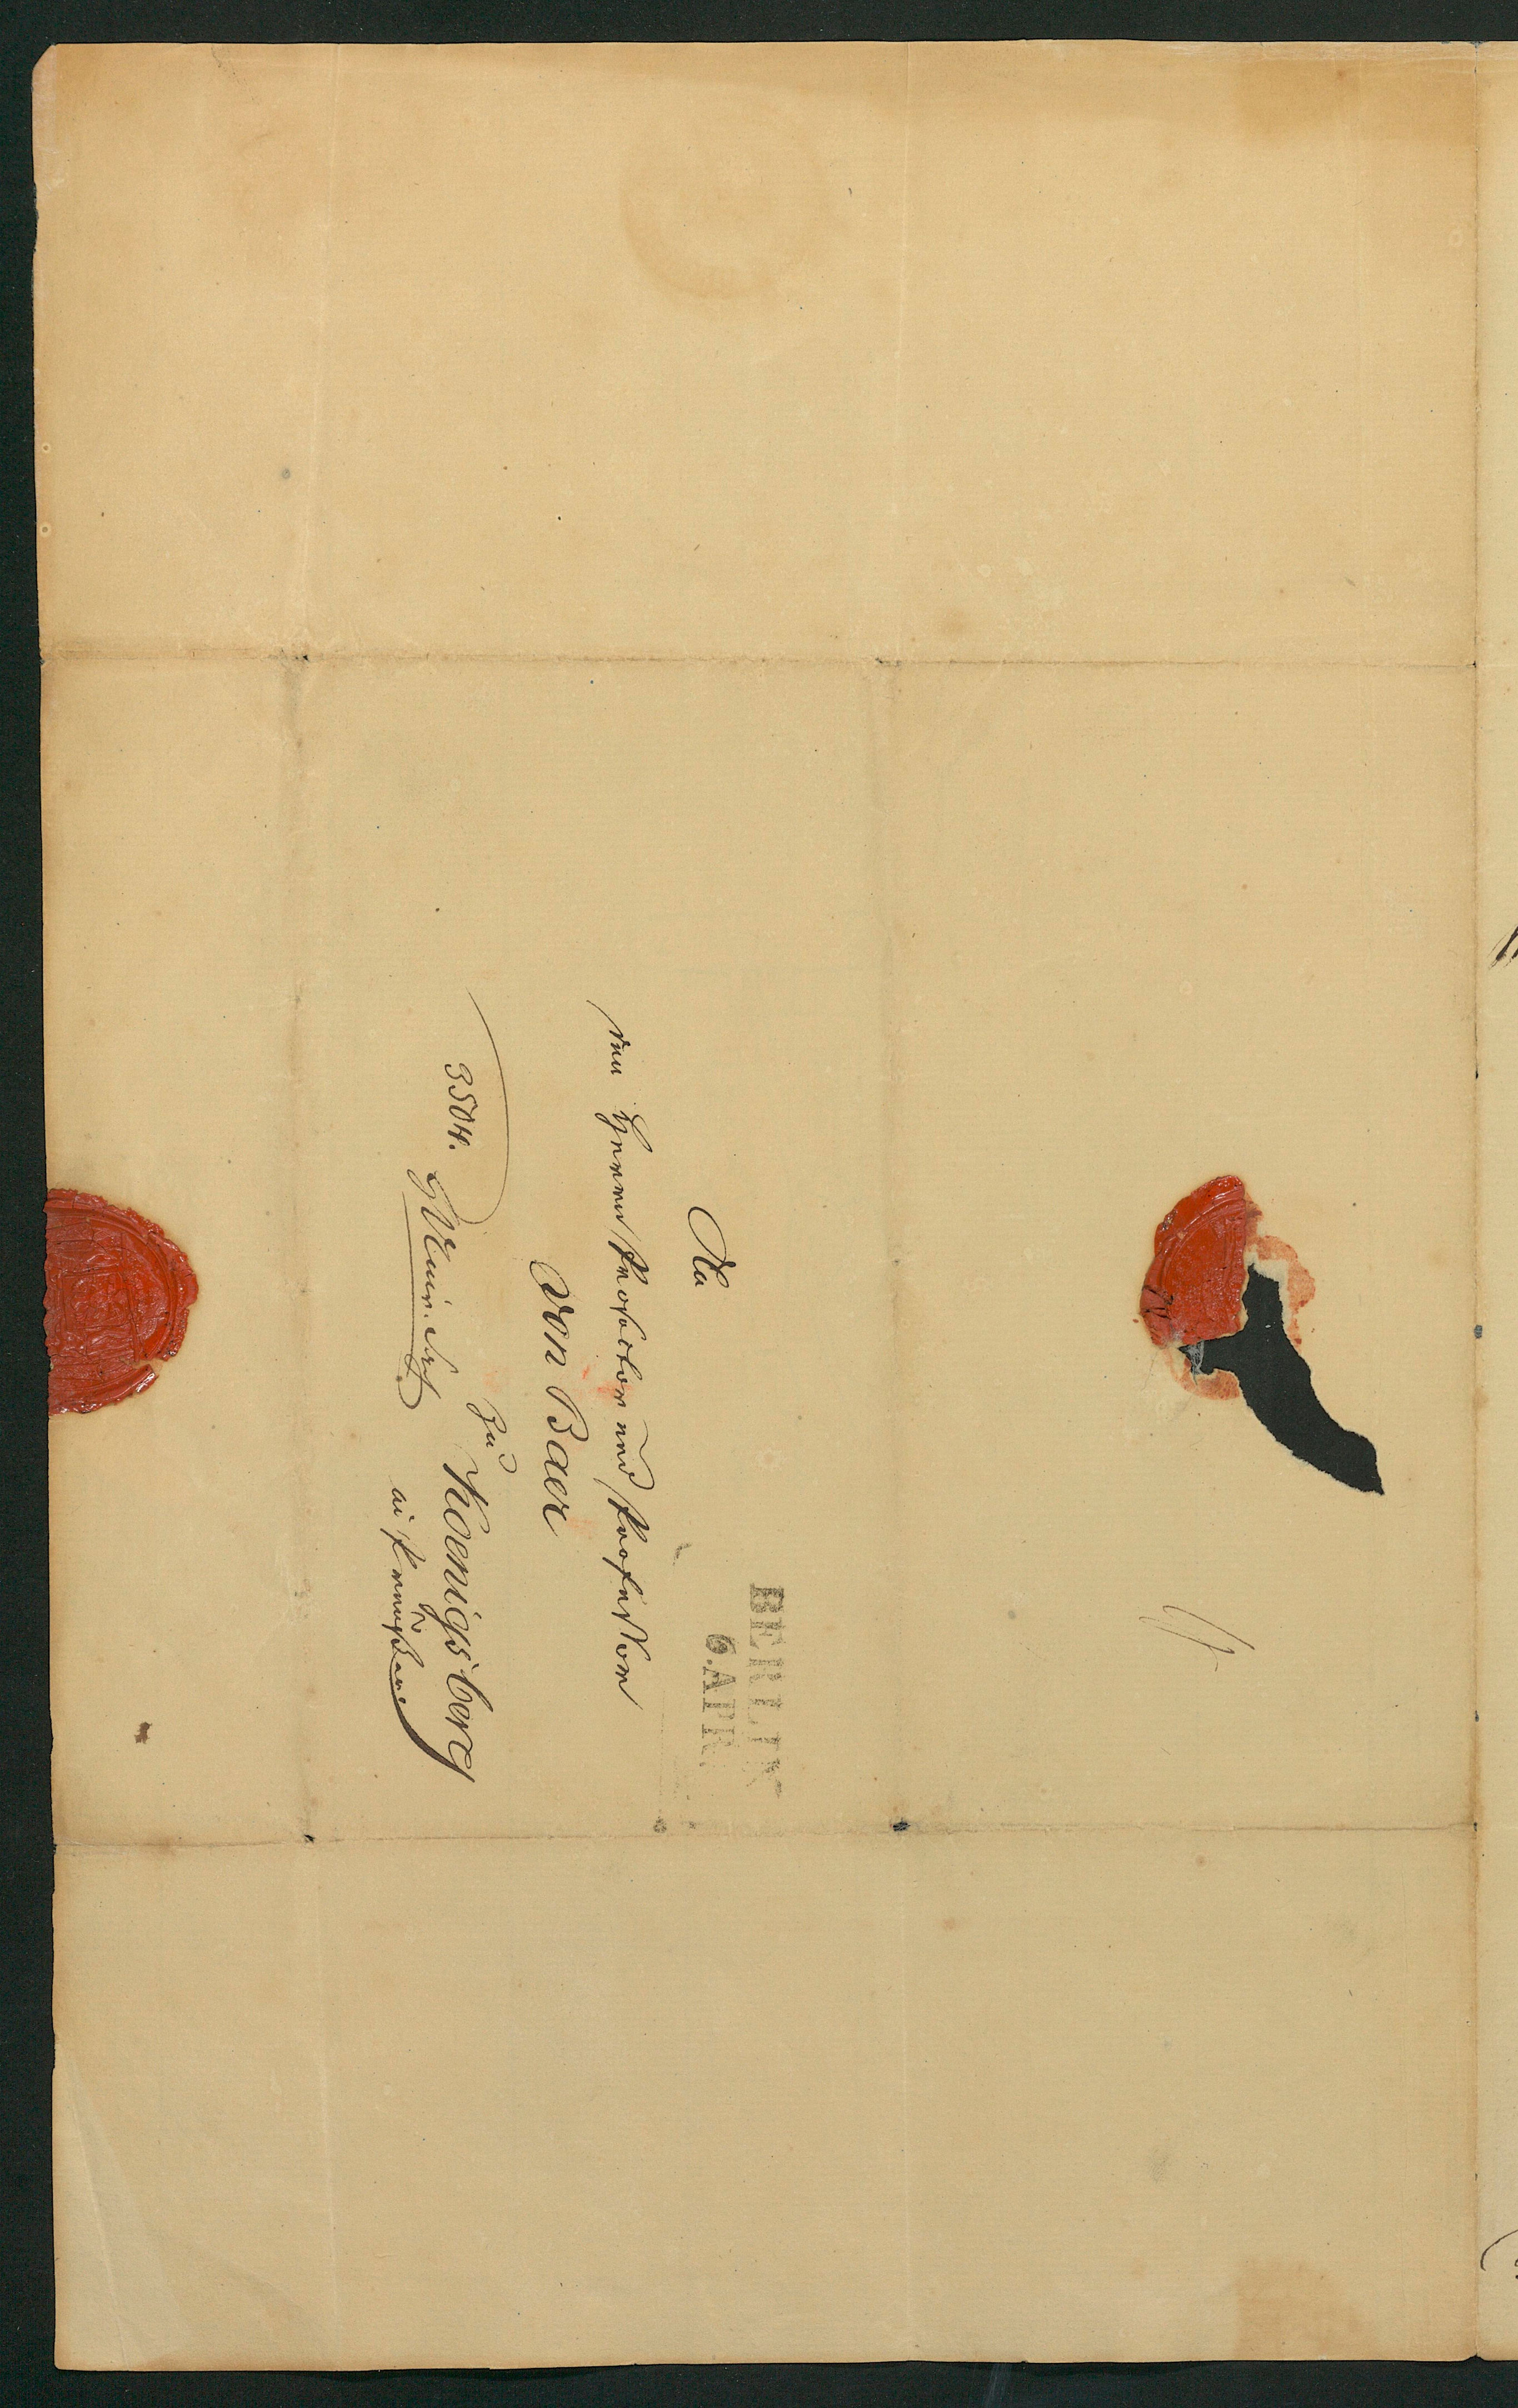 BERLIN
6. APR.
An
den Herrn Prosector und Professor
von Baer
zu Koenigsberg
in Preußen
3504.